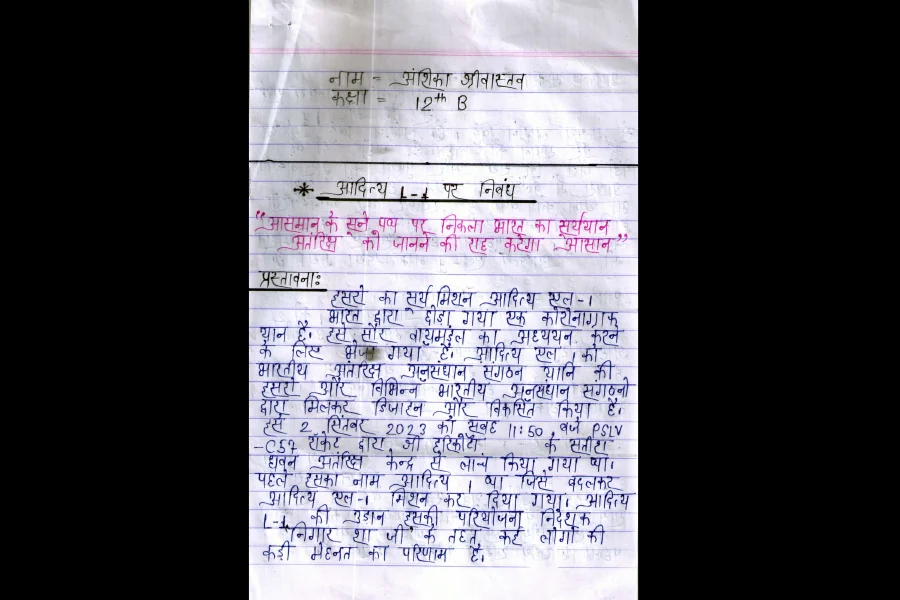 नाम = अंशिका श्रीवास्तव
कक्षा = 12th B
* आदित्य L-1 पर निबंध
"आसमान के सूने पथ पर निकला भारत का सूर्ययान
अतंरिक्ष को जानने की राह करेगा आसान"
प्रस्तावनाः
इसरो का सूर्य मिशन आदित्य एल-1
भारत द्वारा छोड़ा गया एक कोरोनाग्राफ
यान है। इसे सौर वायुमंडल का अध्ययन करने
के लिए भेजा गया है। आदित्य एल 1 को
भारतीय अतंरिक्ष अनुसंधान संगठन यानि की
इसरो और विभिन्न भारतीय अनुसंधान संगठनो
द्वारा मिलकर डिजाइन और विकसित किया है।
इसे 2 सितंबर 2023 को सुबह 11:50 बजे PSLV
-C57 रॉकेट द्वारा श्री हरिकोटा के सतीश
धवन अतंरिक्ष केन्द्र से लांच किया गया था।
पहले इसका नाम आदित्य 1 था जिसे बदलकर
आदित्य एल-1 मिशन कर दिया गया। आदित्य
L-1 की उड़ान इसकी परियोजना निदेशक
"निगार शा जी" के तहत कई लोगों की
कड़ी मेहनत का परिणाम है।